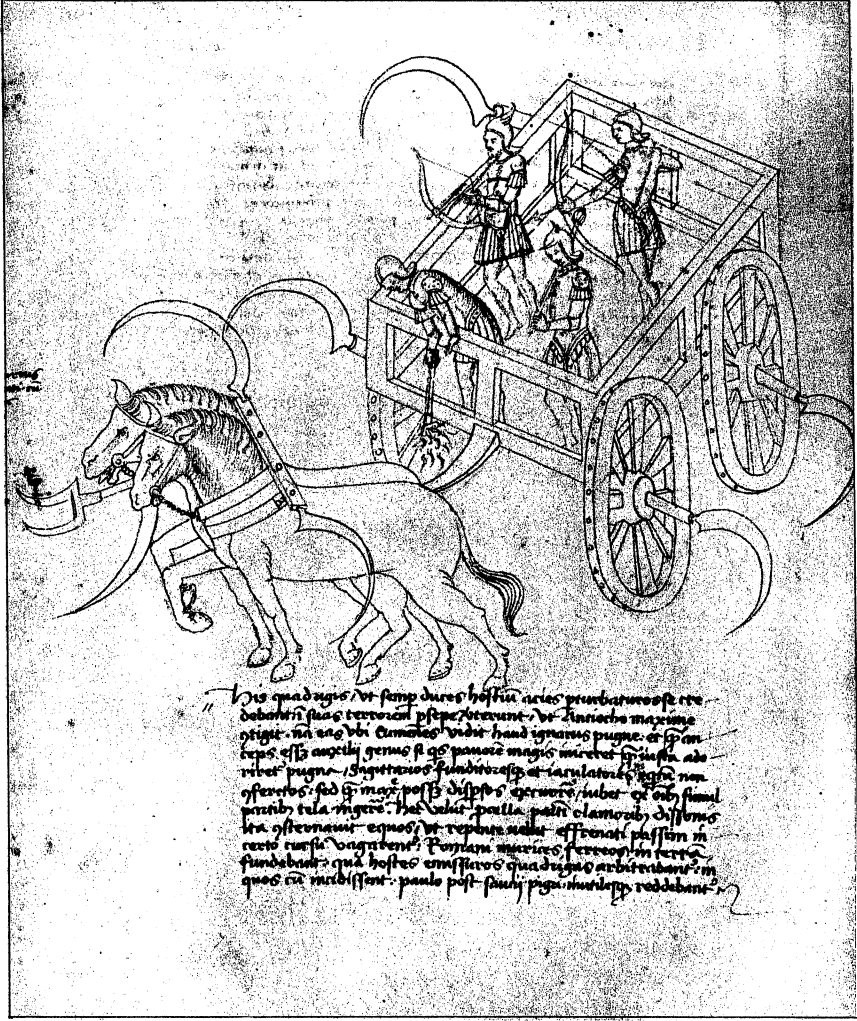 His quadrigis, ut semp duces hostiũ acies pturbaturos se cre
debant ĩ suas terrorem psepe verterunt. Ut Antiocho maxime
ꝯtigit. nã eas ubi Eumenes vidit haud ignarus pugne. et
ceps auxilij genus si qs pavorẽ magis iniceret iusta ado
riret pugna, Sagittarios funditoresqȝ et iaculatores non
ꝯfertos. sed maxĩe possȝ dispsos iubet ex oibȝ simul
partibȝ tela ingerẽ. Hec velut pcella clamoribȝ dissonis
ita ꝯsternavit equos, ut repente velut effrenati passim in
certo cursu vagarent. Romani murices ferreos in terrã
fundebant. qua hostes emissuros quadrigas arbitrabant. in
quos cũ incidissent. paulo post pigri. mutilesqȝ reddebant